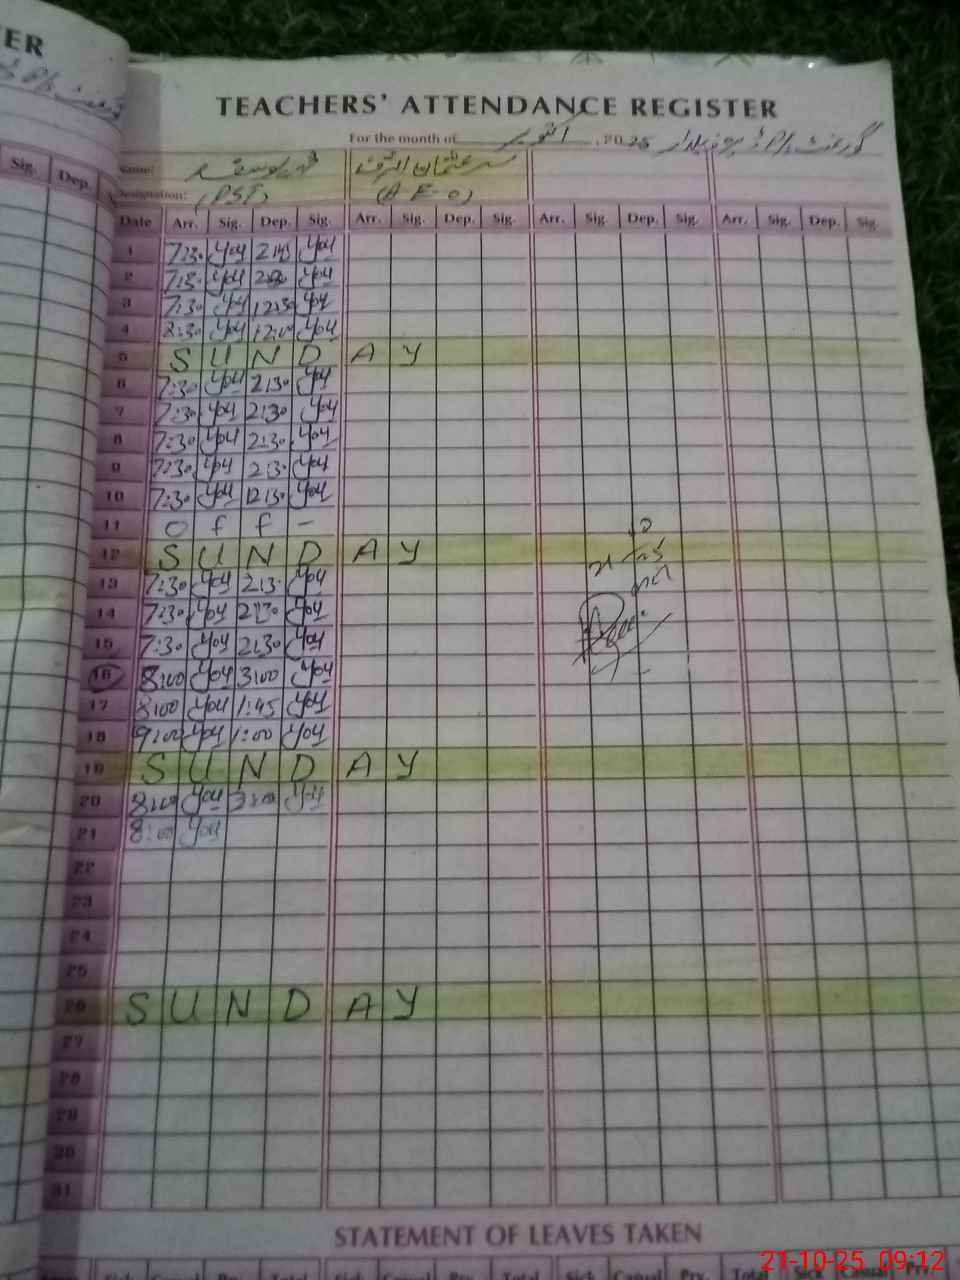 ER
Sig. Dep.
TEACHERS' ATTENDANCE REGISTER
For the month of اکتوبر , 2025
Name: محمد یوسف سر عثمان اشرف
Designation: (PST) (A E O)
Date Arr. Sig. Dep. Sig. Arr. Sig. Dep. Sig. Arr. Sig. Dep. Sig. Arr. Sig. Dep. Sig.
1 7:30 you you
2 you you
3 7:30 you 12:30 you
4 8:30 you 12:00 you
5 S U N D A Y
6 7:30 you 2:30 you
7 7:30 you 2:30 you
8 7:30 you 2:30 you
9 7:30 you 2:30 you
10 7:30 you 12:30 you
11 O f f -
12 S U N D A Y
13 7:30 you 2:30 you
14 7:30 you 2:30 you
15 7:30 you 2:30 you
16 8:00 you 3:00 you
17 8:00 you 1:45 you
18 9:00 you 1:00 you
19 S U N D A Y
20 8:00 you 3:00 you
21 8:00 you
22
23
24
25
26 S U N D A Y
27
28
29
30
31
STATEMENT OF LEAVES TAKEN
Sick Casual Prv. Total
21-10-25 09:12